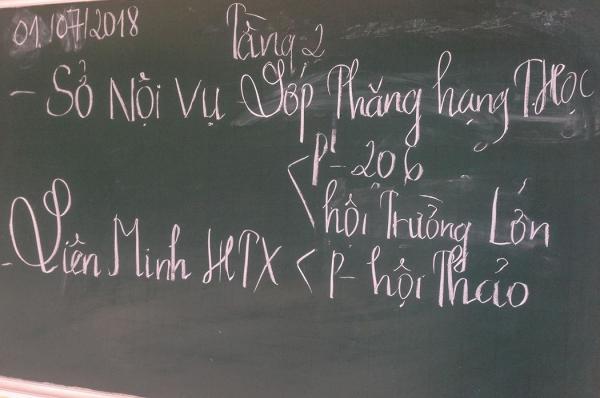 01/07/2018
Tầng 2
- Sở Nội Vụ Lớp Thăng hạng T.Học
< P- 206
hội Trường Lớn
- Liên Minh HTX < P- hội Thảo